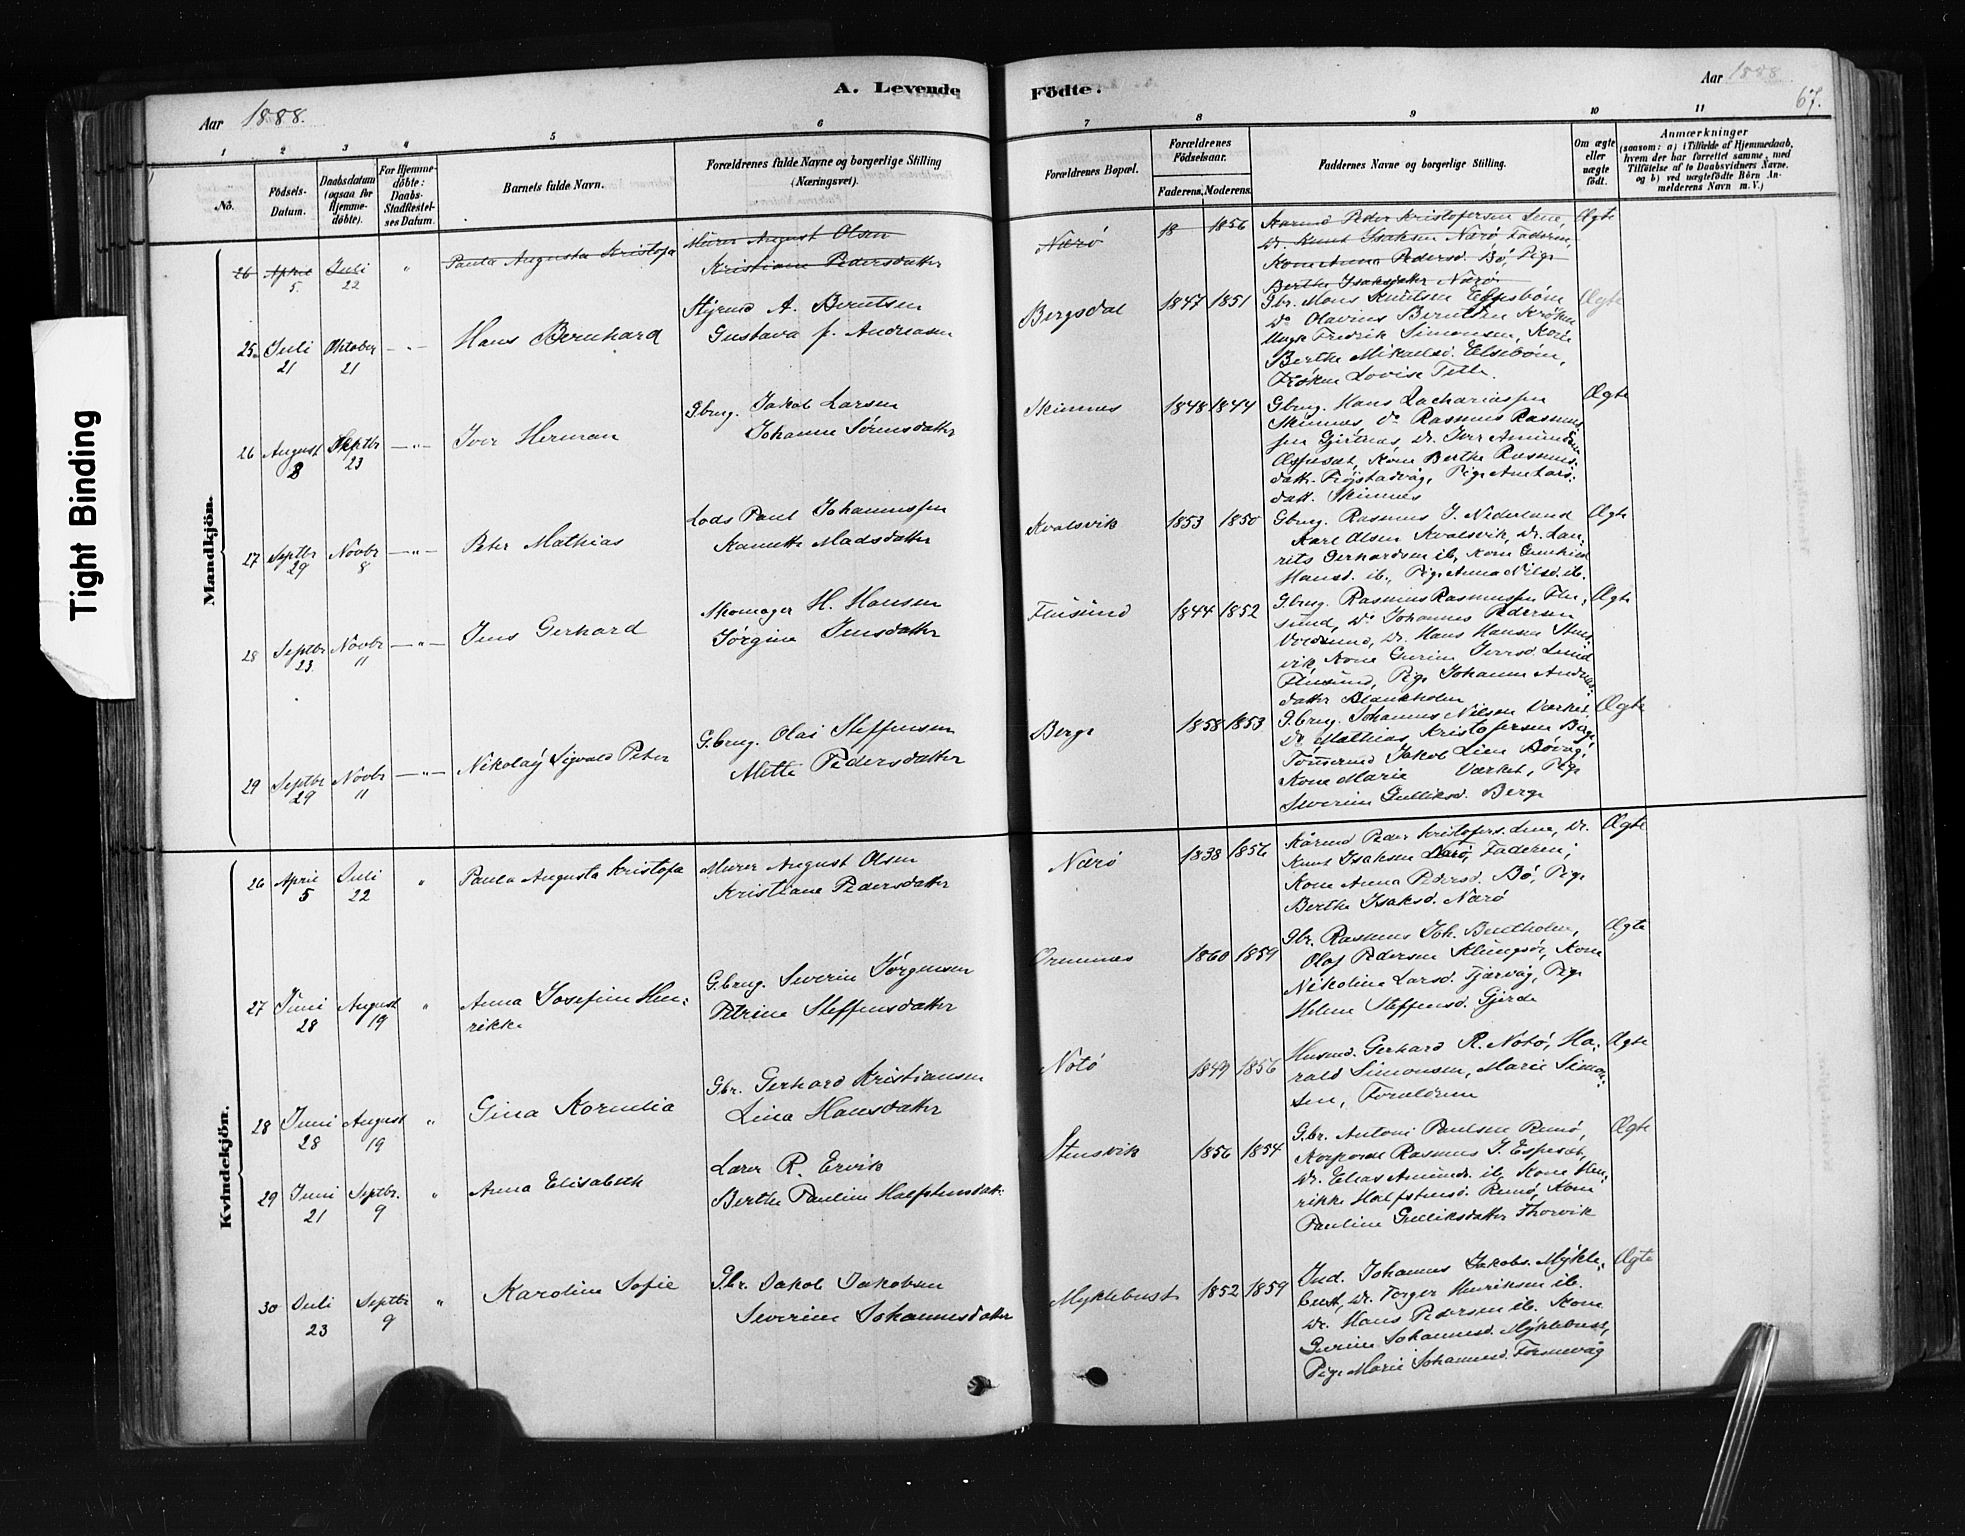 Tight Binding
Aar 1888.
A. Levende Födte.
Aar 1888
67.
1 2 3 4 5 6 7 8 9 10 11
No.
Födsels-Datum.
Daabsdatum (ogsaa for Hjemme-döbte).
For Hjemme-döbte: Daabs-Stadfæstel-ses Datum.
Barnets fulde Navn.
Forældrenes fulde Navne og borgerlige Stilling (Næringsvei).
Forældrenes Bopæl.
Forældrenes Födselsaar.
Faderens. Moderens.
Faddernes Navne og borgerlige Stilling.
Om ægte eller uægte födt.
Anmærkninger
(saasom: a) i Tilfælde af Hjemmedaab, hvem der har forrettet samme, med Tilföielse af to Daabsvidners Navne. og b) ved uægtefödte Börn An-melderens Navn m. V.)
Mandkjön.
26 April 5. Juli 22 " Paula Augusta Kristofa
Murer August Olsen
Kristiane Pedersdatter
Nærö 18 1856
Kaarmd Peder Kristofersen Lene,
Dr. Knut Isaksen Nærö Faderen,
Kone Anna Pedersd. Bö, Pige
Berthe Isaksdatter Nærö
Ægte
25. Juli 21 Oktober 21 — " — Hans Bernhard
Styrmd A. Berntsen
Gustava f. Andreasen
Bergsdal 1847 1851
Gbr. Mons Knutsen Elsebøen
Do Olavius Berntsen Kröken
Ungk Fredrik Simonsen, Kone
Berthe Mikaelsd. Elsebøen,
Fröken Lovise Telle.
Ægte
26 August 8 Septbr 23 — " — Iver Herman
Gbrug. Jakob Larsen
Johanne Sörensdatter
Skinnes 1848 1844
Gbrug. Hans Zachariassen
Skinnes, Do Rasmus Rasmus-
sen Gjertnes, Dr. Iver Amundsen
Espesæt, Kone Berthe Rasmus-
datt. Fröjstadvåg, Pige Ane Lars-
datt. Skinnes
Ægte
27 Septbr 29 Novbr 8 — " — Peter Mathias
Lods Paul Johannessen
Hanette Madsdatter
Kvalsvik 1853 1850
Gbrug. Rasmus J. Nederland
Karl Olsen Kvalsvik, Dr. Lau-
rits Gerhardsen ib, Kone Gunhild
Hansd. ib., Pige Anna Nilsd. ib.
Ægte
28 Septbr 23 Novbr 11 — " — Jens Gerhard
Skomager H. Hansen
Jörgine Jensdatter
Flusund 1844 1852
Gbrug. Rasmus Rasmussen Flu-
sund, Do Johannes Pedersen
Voldsund, Dr. Hans Hansen Stens-
vik, Kone Gurine Iversd. Lund
Flusund, Pige Johanne Andreas-
datter Blankholm
Ægte
29 Septbr 29 Novbr 11 — " — Nikolaÿ Sigvald Peter
Gbrug. Olai Steffensen
Mette Pedersdatter
Berge 1858 1853
Gbrug. Johannes Nilsen Værket,
Do Mathias Kristofersen Berge
Tömmrmd Jakob Lien Bövåg,
Kone Marie Værket, Pige
Severine Gulliksd. Berge
Ægte
Kvindekjön.
26 April 5 Juli 22 " Paula Augusta Kristofa
Murer August Olsen
Kristiane Pedersdatter
Nærö 1838 1856
Kårmd Peder Kristofers. Lene, Dr.
Knut Isaksen Nærö, Faderen;
Kone Anna Pedersd. Bö, Pige
Berthe Isaksd. Nærö
Ægte
27 Juni 28 August 19 " Anna Josefine Hen-
rikke
Gbrug. Severin Jörgensen
Petrine Steffensdatter
Ormnes 1860 1859
Gbr. Rasmus Joh. Bentholm,
Olaf Pedersen Klungsör, Kone
Nikoline Larsd. Tjærvåg, Pige
Helene Steffensd. Gjerde
Ægte
28 Juni 28 August 19 " Gina Kornelia
Gbr. Gerhard Kristiansen
Lina Hansdatter
Notö 1849 1856
Husmd. Gerhard R. Notö, Ha-
rald Simonsen, Marie Simon-
sen, Forældrene
Ægte
29 Juni 21 Septbr. 9 " Anna Elisabeth
Lærer R. Ervik
Berthe Pauline Halfstensdatt.
Stensvik 1856 1854
Gbr. Antoni Paulsen Runö,
Korporal Rasmus J. Espesæt,
Dr. Elias Amunds. ib, Kone Hen-
rikke Halfstensd. Runö, Kone
Pauline Gulliksdatter Thorvik
Ægte
30 Juli 23 Septbr 9 " Karoline Sofie
Gbr. Jakob Jakobsen
Severine Johannesdatter
Myklebust 1852 1859
Ind. Johannes Jakobs. Mykle-
bust, Dr. Torger Henriksen ib.
Dr. Hans Pedersen ib. Kone
Gurine Johannesd. Myklebust,
Pige Marie Johannesd. Fosnevåg
Ægte